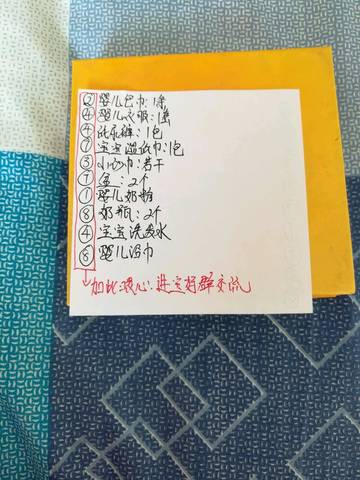 ② 婴儿包巾:1条
④ 婴儿衣服:1套
④ 纸尿裤:1包
⑦ 宝宝湿纸巾:1包
③ 小沙巾:若干
⑦ 盆:2个
① 婴儿奶粉
⑧ 奶瓶:2个
④ 宝宝洗发水
⑥ 婴儿浴巾
加此咪心:进宝妈群交流